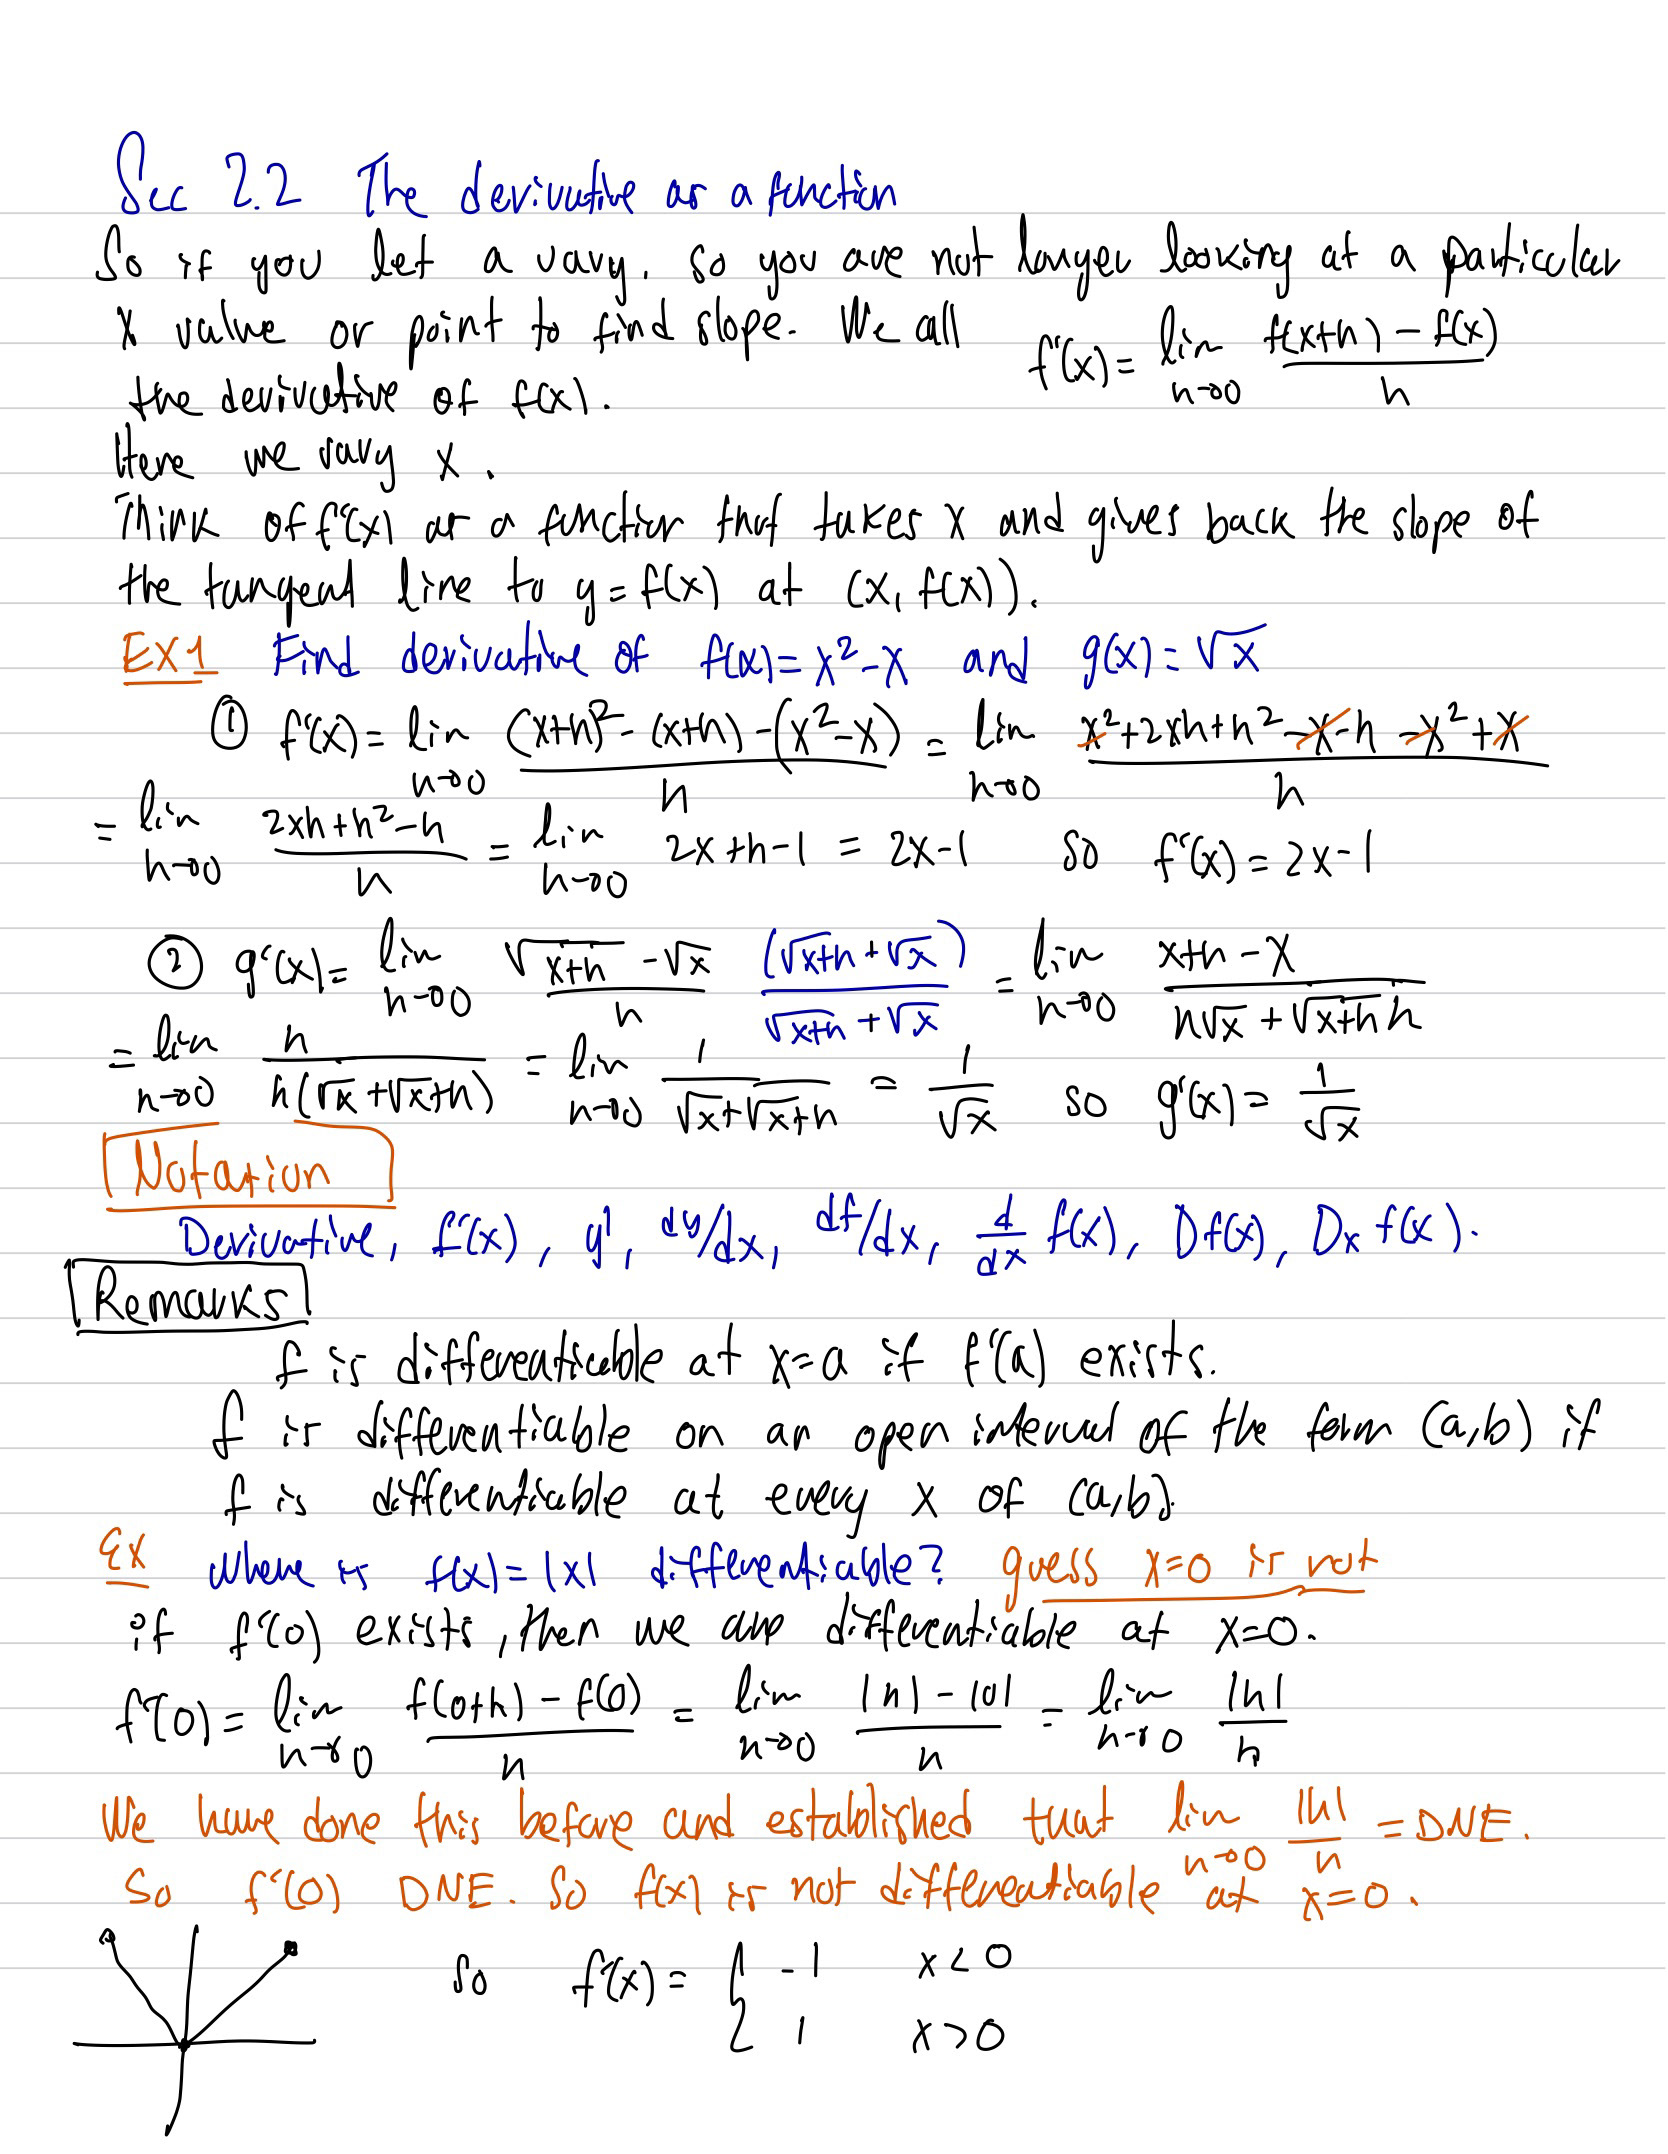 Sec 2.2 The derivative as a function
So if you let a vary. So you are not longer looking at a particular
x value or point to find slope. We call f'(x) = lim h→0 (f(x+h) - f(x))/h
the derivative of f(x).
Here we vary x.
Think of f'(x) as a function that takes x and gives back the slope of
the tangent line to y = f(x) at (x, f(x)).
EX1 Find derivative of f(x) = x² - x and g(x) = √x
① f'(x) = lim h→0 ((x+h)² - (x+h) - (x² - x))/h = lim h→0 (x² + 2xh + h² - x - h - x² + x)/h
= lim h→0 (2xh + h² - h)/h = lim h→0 2x + h - 1 = 2x - 1 So f'(x) = 2x - 1
② g'(x) = lim h→0 (√(x+h) - √x)/h (√(x+h) + √x)/(√(x+h) + √x) = lim h→0 (x+h - x)/(h√x + √(x+h) h)
= lim h→0 h/(h(√x + √(x+h))) = lim h→0 1/(√x + √(x+h)) = 1/√x so g'(x) = 1/√x
Notation
Derivative, f'(x), y', dy/dx, df/dx, d/dx f(x), Df(x), Dx f(x).
Remarks
f is differentiable at x=a if f'(a) exists.
f is differentiable on an open interval of the form (a,b) if
f is differentiable at every x of (a,b).
Ex Where is f(x) = |x| differentiable? guess x=0 is not
if f'(0) exists, then we are differentiable at x=0.
f'(0) = lim h→0 (f(0+h) - f(0))/h = lim h→0 (|h| - |0|)/h = lim h→0 |h|/h
We have done this before and established that lim h→0 |h|/h = DNE.
So f'(0) DNE. So f(x) is not differentiable at x=0.
So f'(x) = { -1 x < 0
1 x > 0